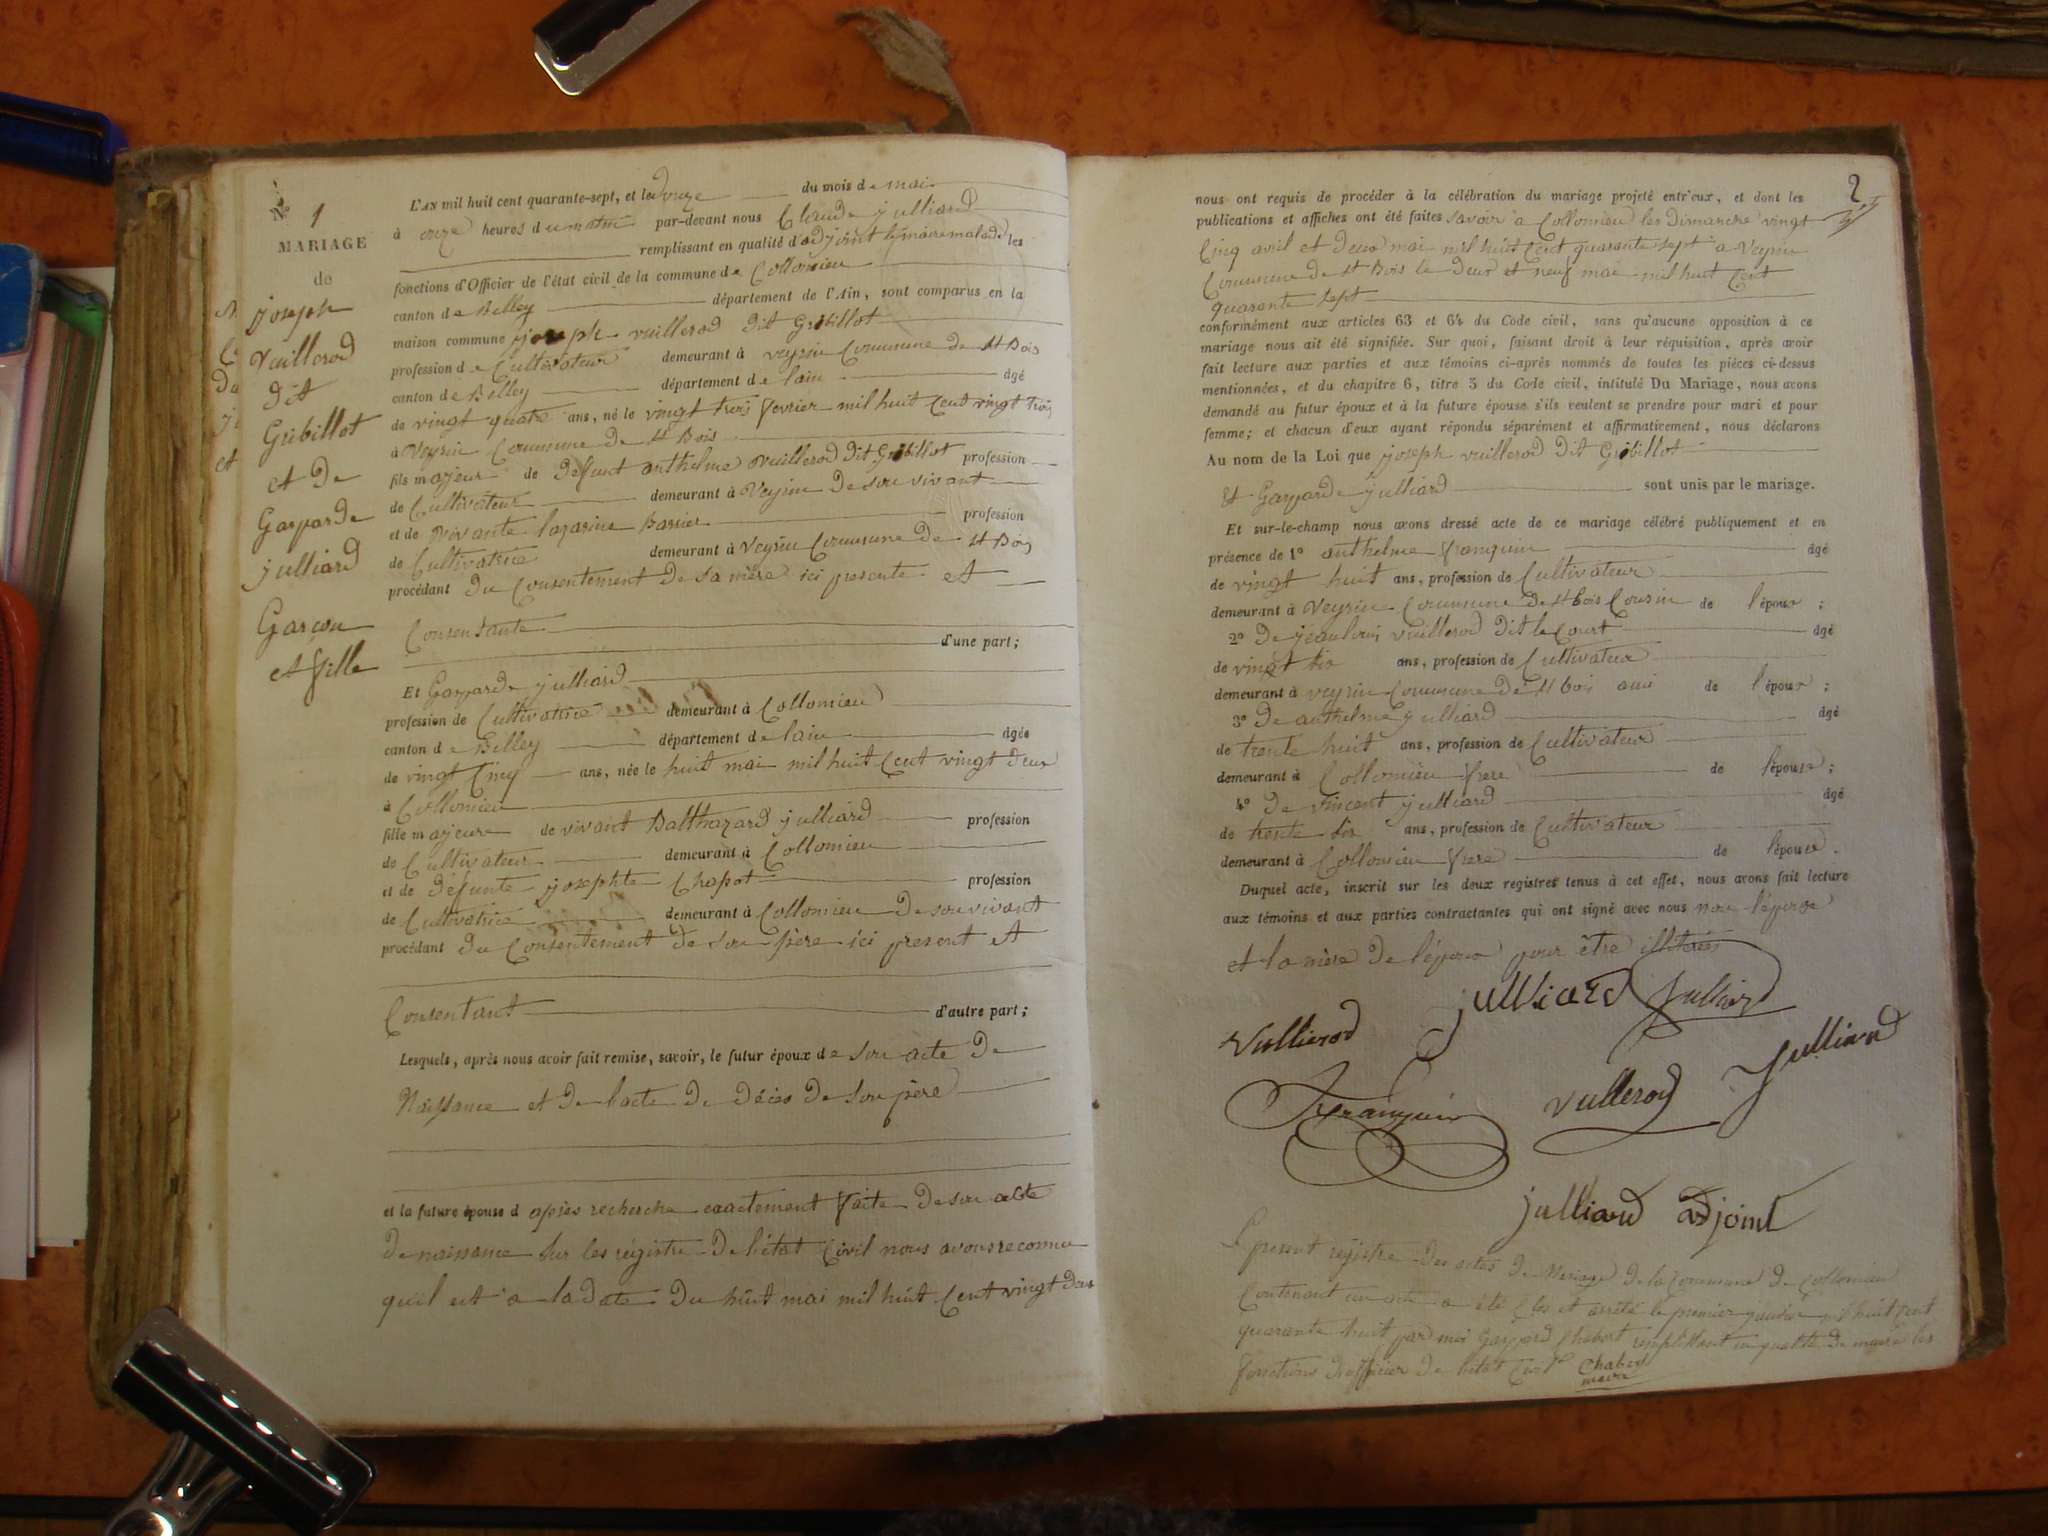 N° 1
MARIAGE
de
joseph
Vuillerod
dit
Gribillot
et de
Gasparde
julliard
Garçon
et fille
L'AN mil huit cent quarante-sept, et le douze du mois de mai
à onze heures du matin par-devant nous Claude julliard
remplissant en qualité d'adjoint le maire malade les
fonctions d'Officier de l'état civil de la commune de Collomieu
canton de Belley département de l'Ain, sont comparus en la
maison commune joseph vuillerod dit Gribillot
profession de Cultivateur demeurant à veyrin Commune de St Bois
canton de Belley département de lain âgé
de vingt quatre ans, né le vingt trois fevrier mil huit Cent vingt trois
à Veyrin Commune de St Bois
fils majeur de defunt anthelme vuillerod dit Gribillot profession
de Cultivateur demeurant à Veyrin de son vivant
et de vivante lazarine Barrier profession
de Cultivatrice demeurant à Veyrin Commune de St Bois
procédant du Consentement de sa mère ici presente et
Consentante
d'une part;
Et Gasparde julliard
profession de Cultivatrice demeurant à Collomieu
canton de Belley département de lain âgée
de vingt Cinq ans, née le huit mai mil huit Cent vingt deux
à Collomieu
fille majeure de vivant Balthazard julliard profession
de Cultivateur demeurant à Collomieu
et de défunte josephte Chapot profession
de Cultivatrice demeurant à Collomieu de son vivant
procédant du Consentement de son père ici present et
Consentant d'autre part;
Lesquels, après nous avoir fait remise, savoir, le futur époux de son acte de
Naissance et de l'acte de décès de son père
et la future épouse d après recherche exactement faite de son acte
de naissance sur les régistre de l'état Civil nous avons reconnu
quil est a la date du huit mai mil huit Cent vingt deux
2
nous ont requis de procéder à la célébration du mariage projeté entr'eux, et dont les
publications et affiches ont été faites savoir a Collomieu les dimanche vingt
Cinq avril et deux mai mil huit Cent quarante sept a Veyrin
Commune de St Bois le deux et neuf mai mil huit Cent
quarante sept
conformément aux articles 63 et 64 du Code civil, sans qu'aucune opposition à ce
mariage nous ait été signifiée. Sur quoi, faisant droit à leur réquisition, après avoir
fait lecture aux parties et aux témoins ci-après nommés de toutes les pièces ci-dessus
mentionnées, et du chapitre 6, titre 5 du Code civil, intitulé Du Mariage, nous avons
demandé au futur époux et à la future épouse s'ils veulent se prendre pour mari et pour
femme; et chacun d'eux ayant répondu séparément et affirmativement, nous déclarons
Au nom de la Loi que joseph vuillerod dit Gribillot
Et Gasparde julliard sont unis par le mariage.
Et sur-le-champ nous avons dressé acte de ce mariage célébré publiquement et en
présence de 1° anthelme franquin âgé
de vingt huit ans, profession de Cultivateur
demeurant à Veyrin Commune de St bois Cousin de l'époux;
2° de jeanlouis vuillerod dit le Court âgé
de vingt six ans, profession de Cultivateur
demeurant à veyrin Commune de St bois ami de l'époux;
3° de anthelme julliard âgé
de trente huit ans, profession de Cultivateur
demeurant à Collomieu frere de l'épouse;
4° de vincent julliard âgé
de trente six ans, profession de Cultivateur
demeurant à Collomieu frere de l'épouse.
Duquel acte, inscrit sur les deux registres tenus à cet effet, nous avons fait lecture
aux témoins et aux parties contractantes qui ont signé avec nous non l'épouse
et la mère de l'époux pour être illiterés
julliard julliard
Vullierod
julliard
franquin vullerod
julliard adjoint
Le present régistre des actes de Mariage de la Commune de Collomieu
Contenant un acte a été Clos et arrêté le premier janvier mil huit Cent
quarante huit par moi Gaspard Chabert remplissant en qualité de maire les
fonctions d'officier de l'état Civil Chabert
maire